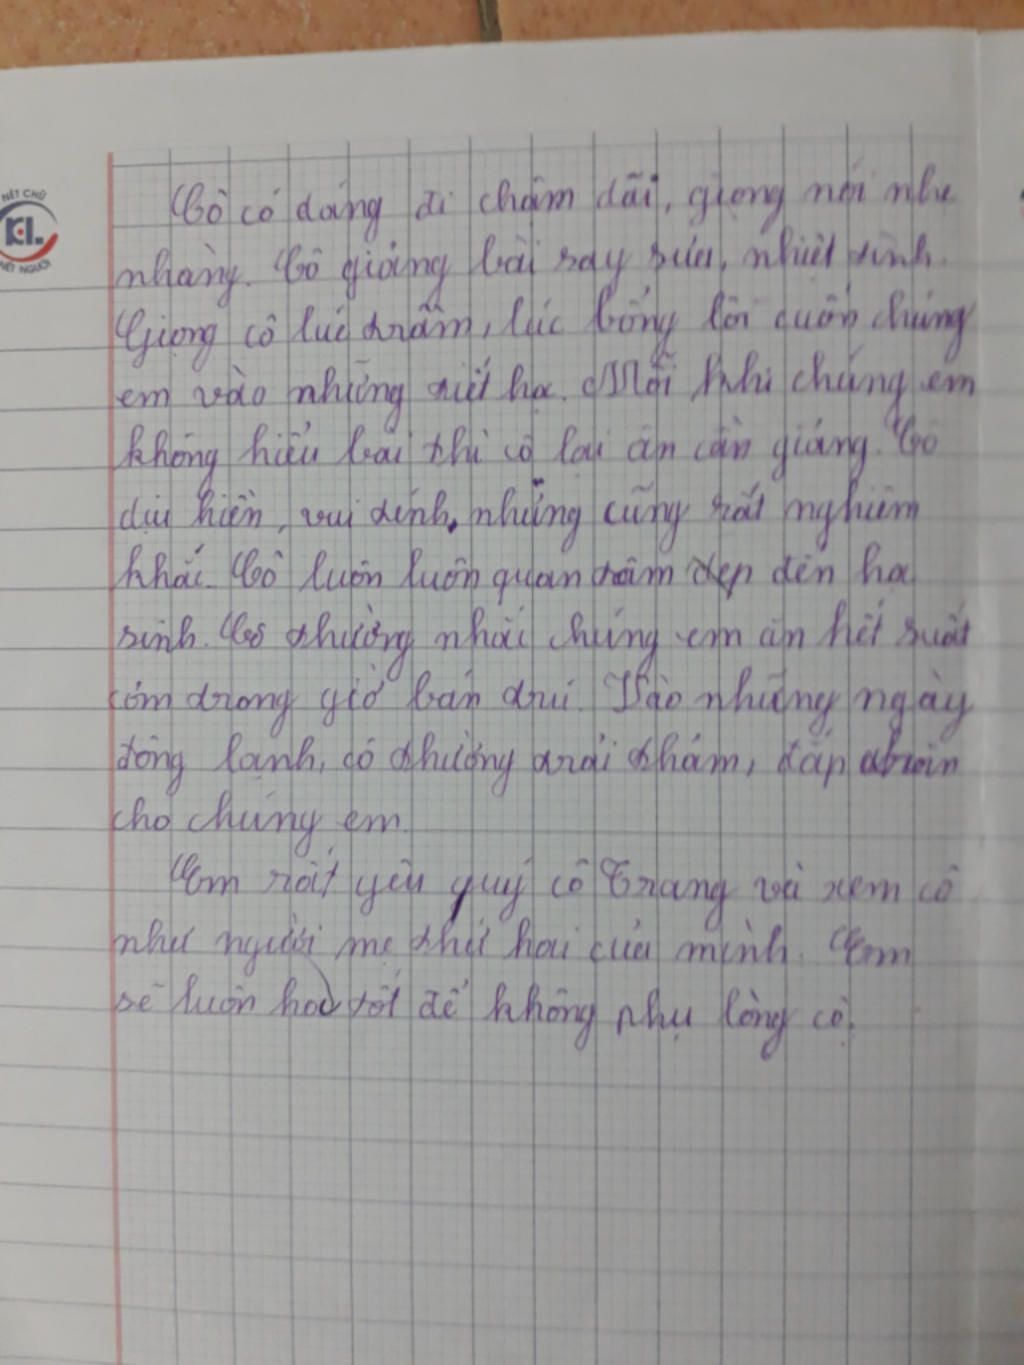 NÉT CHỮ
KL.
NẾT NGƯỜI
Cô có dáng đi chậm dãi, giọng nói nhẹ
nhàng. Cô giảng bài say sưa, nhiệt tình.
Giọng cô lúc trầm, lúc bổng lôi cuốn chúng
em vào những tiết học. Mỗi khi chúng em
không hiểu bài thì cô lại ân cần giảng. Cô
dịu hiền, vui tính, nhưng cũng rất nghiêm
khắc. Cô luôn luôn quan tâm đến học
sinh. Cô thường nhắc chúng em ăn hết suất
cơm trong giờ bán trú. Vào những ngày
đông lạnh, cô thường trải thảm, đắp
cho chúng em.
Em rất yêu quý cô Trang và xem cô
như người mẹ thứ hai của mình. Em
sẽ luôn học tốt để không phụ lòng cô.